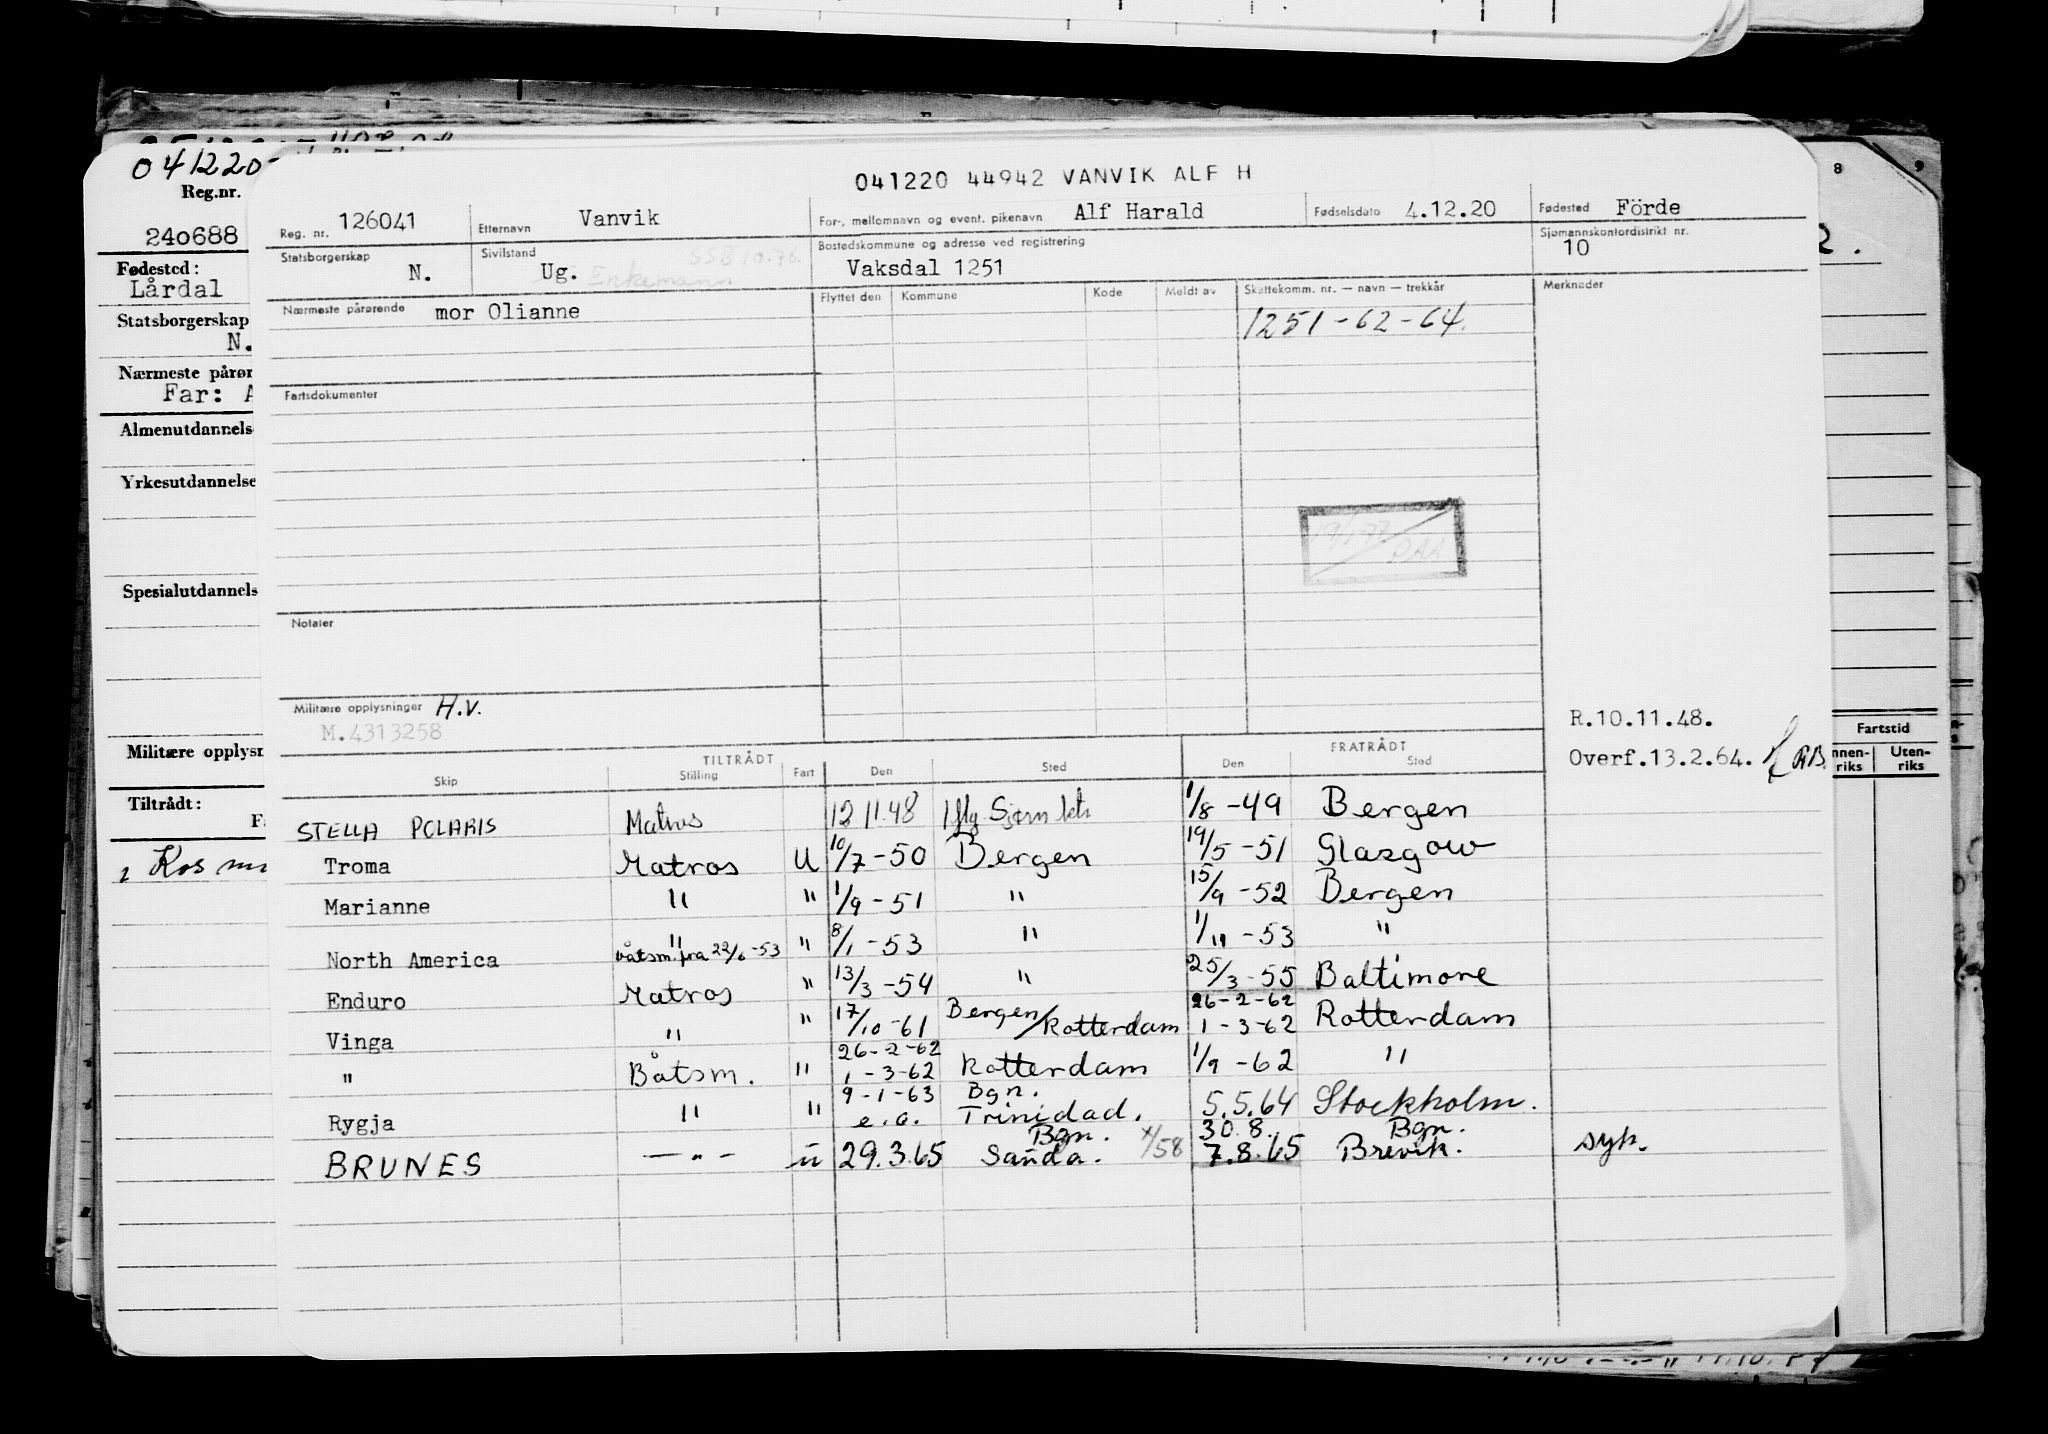 041220
Reg.nr.
240688
Fødested:
Lårdal
Statsborgerskap
N.
Nærmeste pårør
Far: A
Almenutdannels
Yrkesutdannelse
Spesialutdannels
Militære opplysn
Tiltrådt:
F
Kos
041220 44942 VANVIK ALF H
Reg. nr. 126041 Etternavn Vanvik For-, mellomnavn og event. pikenavn Alf Harald Fødselsdato 4.12.20 Fødested Förde
Statsborgerskap N. Sivilstand Ug. Enkemann SSB 10.76. Bostedskommune og adresse ved registrering Vaksdal 1251 Sjømannskontordistrikt nr. 10
Nærmeste pårørende mor Olianne Flyttet den Kommune Kode Meldt av Skattekomm. nr. — navn — trekkår Merknader
1251-62-64.
Fartsdokumenter
Notater
Militære opplysninger H.V.
M.4313258
R.10.11.48.
Overf.13.2.64.
TILTRÅDT FRATRÅDT
Skip Stilling Fart Den Sted Den Sted
STELLA POLARIS Matros 12 11.48 1/8 -49 Bergen
Troma Matros U 10/7 -50 Bergen 19/5 -51 Glasgow
Marianne " " 1/9 -51 " 15/9 -52 Bergen
North America " båtsm. fra 22/6 -53 " 8/1 -53 " 1/11 -53 "
Enduro Matros " 13/3 -54 " 25/3 -55 Baltimore
Vinga " " 17/10 -61 Bergen/Rotterdam 26-2-62 1-3-62 Rotterdam
" Båtsm. " 26-2-62 1-3-62 Rotterdam 1/9 -62 "
Rygja " " 9-1-63 e.a. Bgn. Trinidad. 5.5.64 Stockholm.
BRUNES — " — u 29.3.65 Bgn. Sanda. 30.8. 7.8.65 Bgn. Brevik. syk.
8 9
2.
Fartstid
nnen-riks Uten-riks